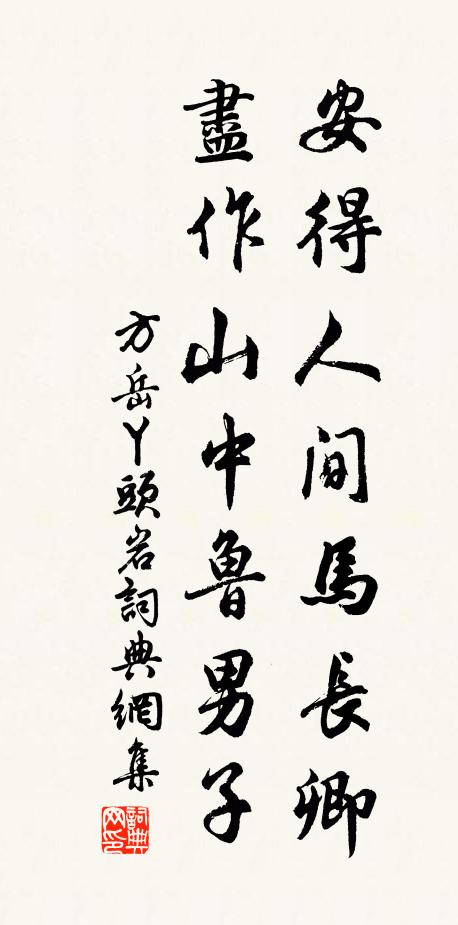 安得人间馬長卿
盡作山中魯男子
方岳丫頭岩詞典網集
詞典網印